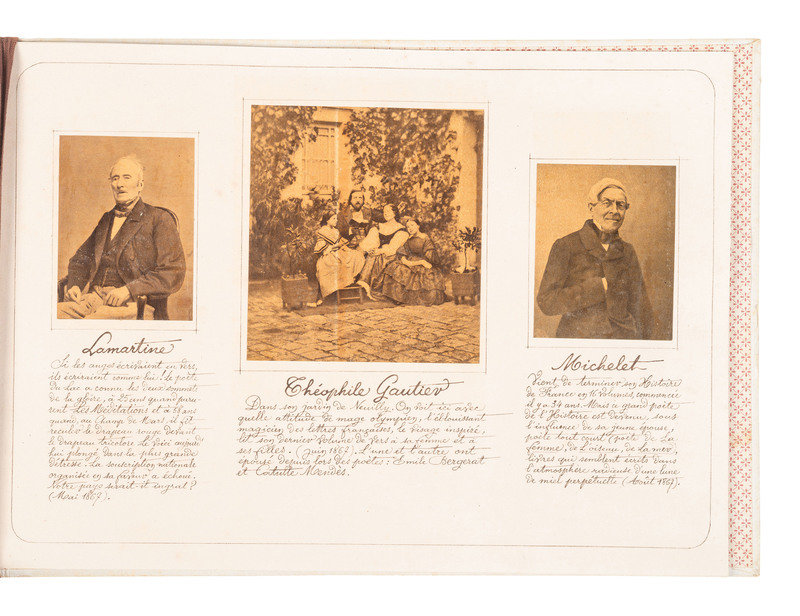 Lamartine
Si les anges écrivaient en vers,
ils écriraient comme lui. Le poète
du Lac a connu les deux sommets
de la gloire, à 25 ans quand paru-
rent Les Méditations et à 58 ans
quand, au Champ de Mars, il fit
reculer le drapeau rouge devant
le drapeau tricolore. Le voici aujourd'
hui plongé dans la plus grande
détresse. La souscription nationale
organisée en sa faveur a échoué.
Notre pays serait-il ingrat ?
(Mai 1867).
Théophile Gautier
Dans son jardin de Neuilly. On voit ici avec
quelle attitude de mage olympien, l'éblouissant
magicien des lettres françaises, le visage inspiré,
lit son dernier volume de vers à sa femme et à
ses filles. (Juin 1867). L'une et l'autre ont
épousé depuis lors des poètes : Emile Bergerat
et Catulle Mendès.
Michelet
Vient de terminer son Histoire
de France en 16 volumes, commencée
il y a 34 ans. Mais ce grand poète
de l'Histoire est devenu, sous
l'influence de sa jeune épouse,
poète tout court (poète de La
femme, de L'oiseau, de La mer,
livres qui semblent écrits dans
l'atmosphère radieuse d'une lune
de miel perpétuelle (Août 1867).